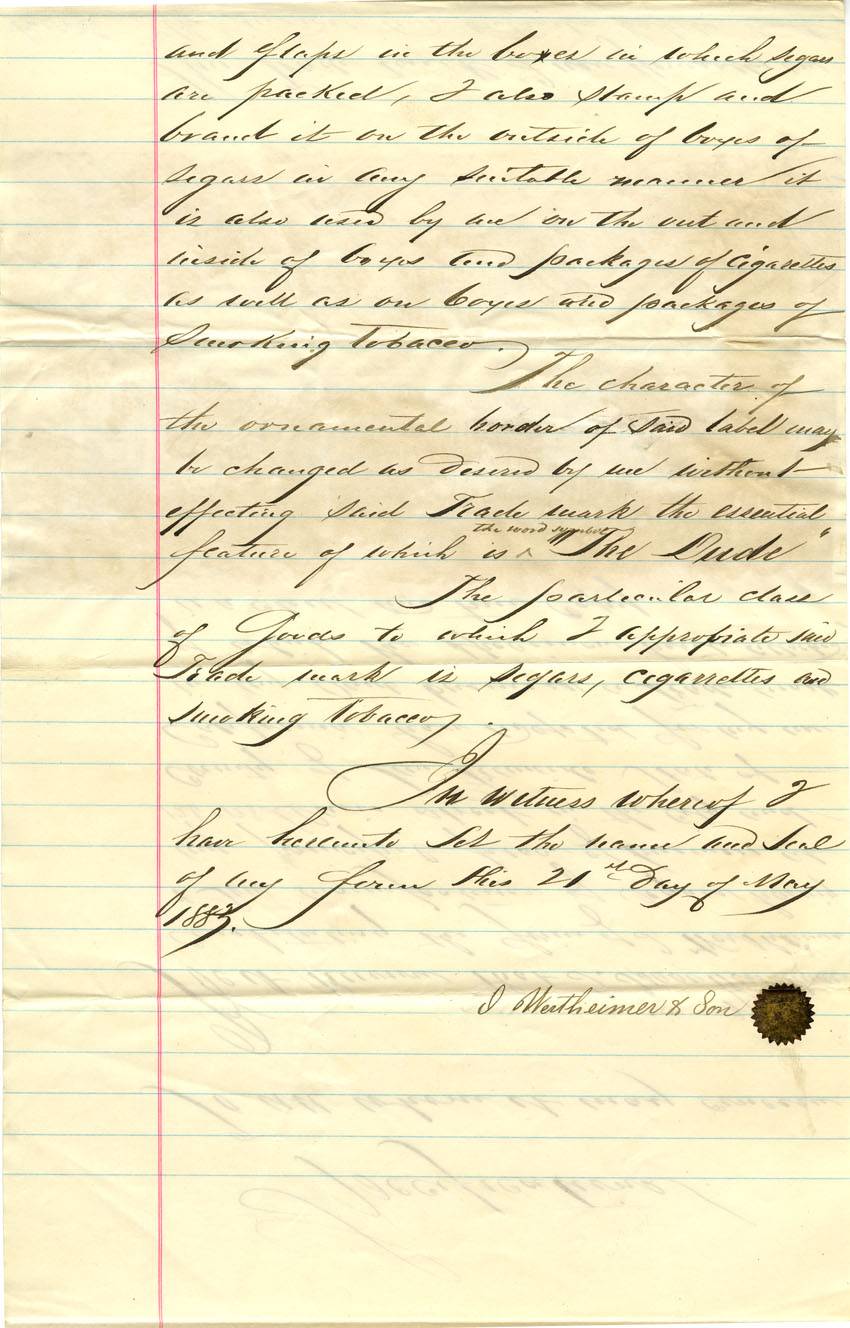 and flaps in the boxes in which segars
are packed, I also stamp and
brand it on the outside of boxes of
segars in any suitable manner it
is also used by me on the out and
inside of boxes and packages of cigarettes
as well as on boxes and packages of
smoking tobacco.
The character of
the ornamental border of said label may
be changed as desired by me without
effecting said Trade mark the essential
feature of which is ^ the word symbol "The Dude"
The particular class
of Goods to which I appropiate said
Trade mark is segars, cegarrettes and
smoking tobacco.
In witness whereof I
have hereunto set the name and seal
of my firm this 21st Day of May
1883.
I Wertheimer & Son